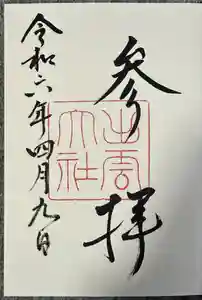 参拝
出雲大社
令和六年四月九日